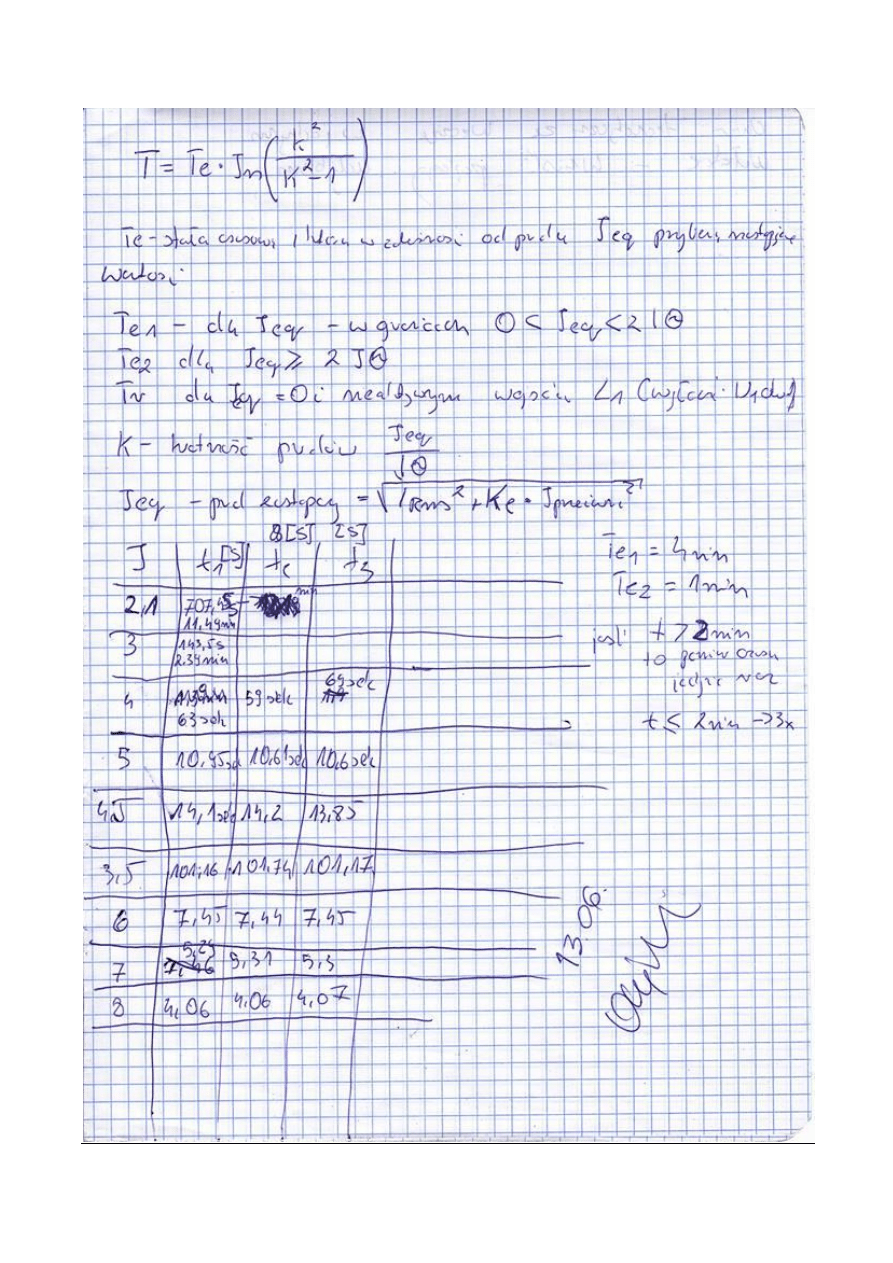 T = Te · Jn(K²/K²-1)
Te - stała czasowa, która w zależności od prądu Jeq przybiera następujące
wartości
Te1 - dla Jeq - w granicach 0 < Jeq < 2 IΘ
Te2 dla Jeq ≥ 2 JΘ
Tr dla Jeq = 0 i nieaktywnym wejściu
K - krotność prądów Jeq/JΘ
Jeq - prąd zastępczy = √(IRms² + Ke · Jprzeciwn²)
8[s] [s]
J t1[s] t2 t3
2,1 707,45
11,49min
3 143,5s
2.39min
4 63sek 59sek 69sek
5 10,45sek 10,61sek 10,6sek
4,5 14,1sek 14,2 13,85
3,5 101,16 101,74 101,17
6 7,45 7,44 7,45
7 5,29 5,31 5,3
8 4,06 4,06 4,07
Te1 = 4min
Te2 = 1min
jeśli t > 2min
to pomiar czasu
jeden raz
t ≤ 2min -> 3x
13.06.